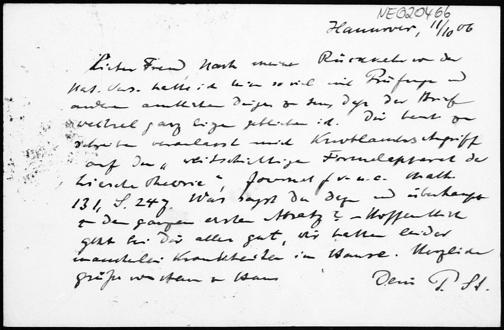 NE020466
Hannover, 11/10 06
Lieber Freund, Nach meiner Rückkehr von der
Nat. Vers. hatte ich hier so viel mit Prüfungen und
anderen amtlichen Dingen zu tun, dass der Brief
wechsel ganz liegen geblieben ist. Dir heut zu
schreiben veranlasst mich
auf den "weitschichtigen Formelapparat der
Lieschen Theorie", Journal f. r. u. a. Math.
131, S. 247. Was sagst Du dazu und überhaupt
zu dem ganzen ersten Absatz? - Hoffentlich
geht bei Dir alles gut, wir hatten leider
mancherlei Krankheiten im Hause. Herzliche
Grüße von Haus zu Haus
Dein P. St.